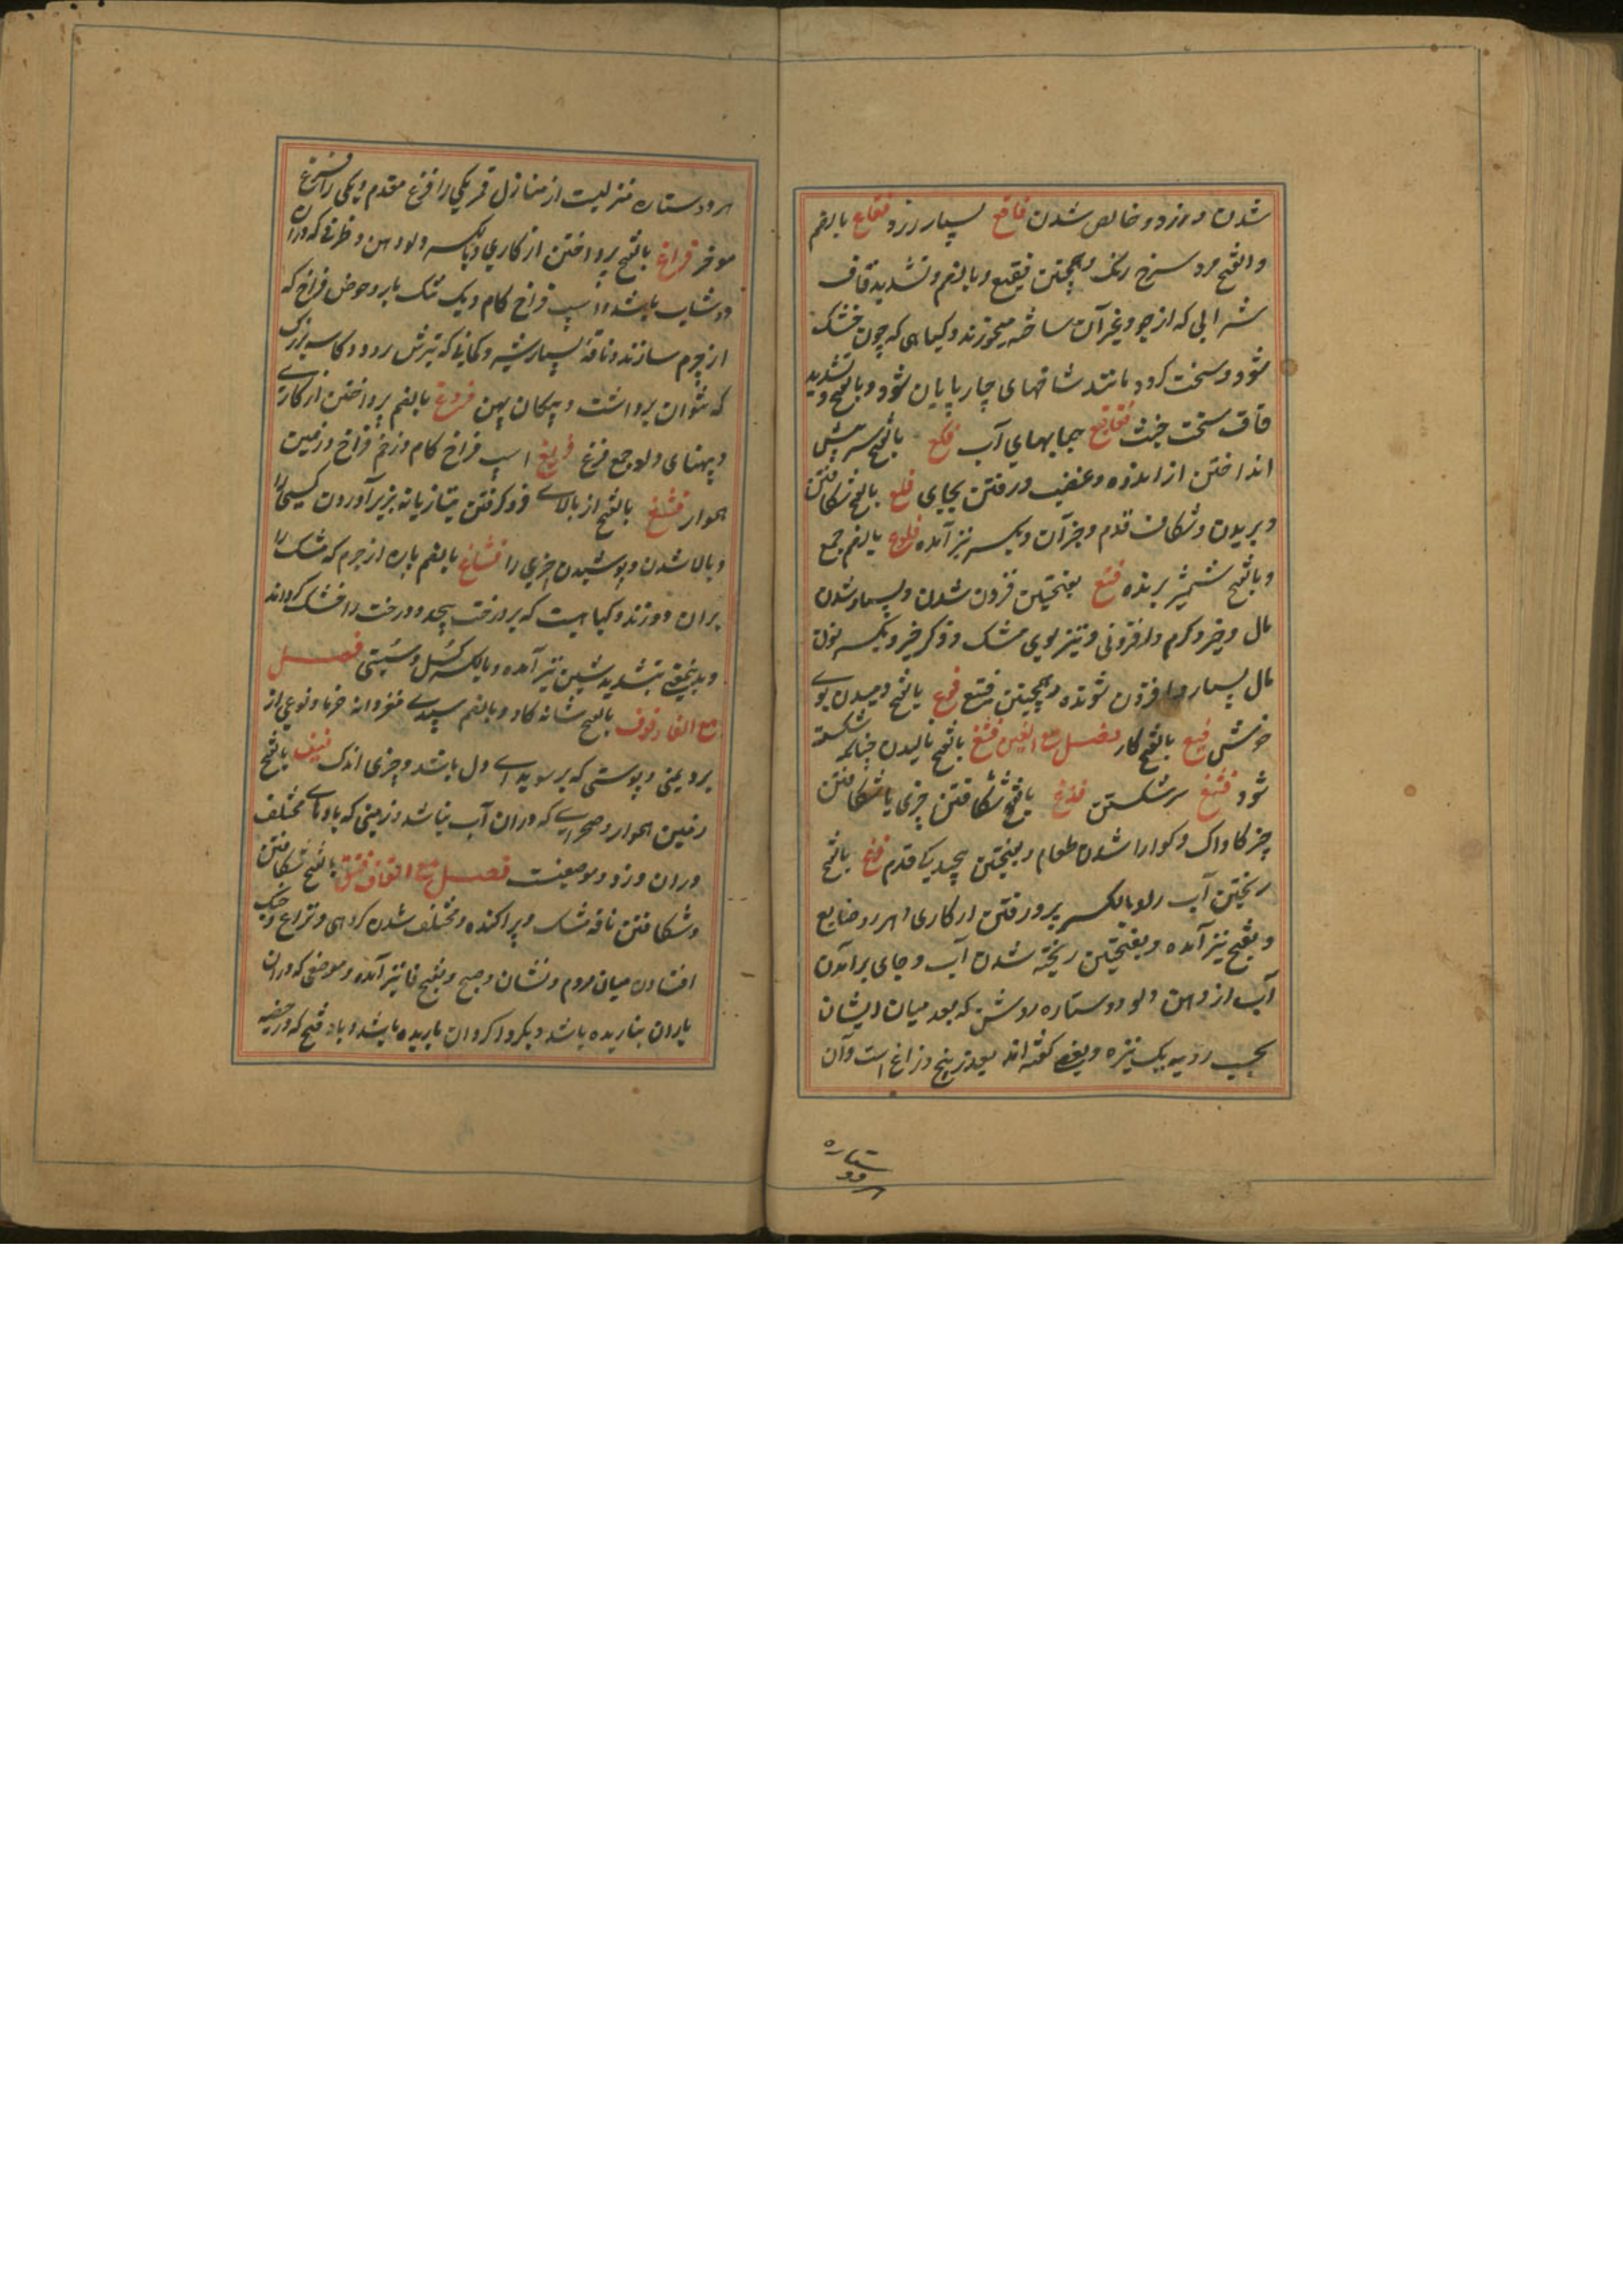 شدن و زرد و خالص شدن فاقع بسیار زرد فقاع بالضم
و الفتح مرد سرخ رنگ و همچنین فقیع و بالضم و تشدید قاف
شرابی که از جو و غیر آن ساخته میخورند و گیاهی که چون خشک
شود و سخت گردد مانند شاخهای چارپایان شود و بالفتح و تشدید
قاف سخت خبث فقاقیع حبابهای آب فکع بالفتح سر پیش
انداختن از اندوه و غضب و رفتن بجای فلع بالفتح شکافتن
و بریدن و شکاف قدم و جز آن و بکسر نیز آمده فلوع بالضم جمع
و بالفتح شمشیر برنده فنع بفتحتین فزون شدن و بسیار شدن
مال و خیر و کرم و افزونی و تیز بوی مشک و ذکر خیر و بکسر نون
مال بسیار و افزون شونده و همچنین فنیع فوع بالفتح دمیدن بوی
خوش فیع بالفتح کار فصل مع الغین فتغ بالفتح مالیدن چنانکه شکسته
شود فثغ سر شکستن فدغ بالفتح شکافتن چیزی یا شکافتن
چیز کاواک و گوارا شدن طعام و بفتحتین پیچیدگی قدم فرغ بالفتح
ریختن آب دلو بالکسر پرورفتن از کاری و هدر و ضایع
و بفتح نیز آمده و بفتحتین ریخته شدن آب و جای برآمدن
آب از دهن دلو و دو ستاره روشن که بعد میان ایشان
بحسب رویه یک نیزه و بعضی گفته اند بعد پنج ذراع است و آن
هر دو ستاره
هر دو ستاره منزلیست از منازل قمر یکی را فرغ مقدم و یکی را فرغ
موخر فراغ بالفتح پرداختن از کاری و بالکسر دلو دهن و ظرفی که دران
دوشاب باشد و اسب فراخ گام و یک تنگ بار و حوض فراخ که
از چرم سازند و ناقه بسیار شیر و کمانی که تیرش رود و کاسه بزرگ
که نتوان برداشت و پیکان پهن فروغ بالضم پرداختن از کاری
و پهنای دلو جمع فرغ فریغ اسب فراخ گام و زخم فراخ و زمین
هموار فشغ بالفتح از بالای فرو گرفتن بتازیانه بزیر آوردن کسی را
و بالا شدن و پوشیدن چیزی را فشاغ بالضم پاره از چرم که مشک را
بران دوزند و گیاهیست که بر درخت پیچد و درخت را خشک گرداند
و بدینمعنی بتشدید شین نیز آمده و بالکسر کسل و سستی فصل
مع الفا فوف بالفتح شانه گاو و بالضم سپیدی مغز دانه خرما و نوعی از
برد یمنی و پوستی که بر سویدای دل باشد و چیزی اندک فیف بالفتح
زمین هموار و صحرایی که دران آب نباشد و زمینی که بادهای مختلف
دران وزد و موضعیست فصل مع القاف فتق بالفتح شکافتن
و شکافتن نافه مشک و پراکنده و مختلف شدن گروهی و نزاع و جنگ
افتادن میان مردم و نشان و صبح و بفتح تا نیز آمده و موضعی که دران
باران نباریده باشد و بگرداگرد آن باریده باشد و باد فتح که در خصیه